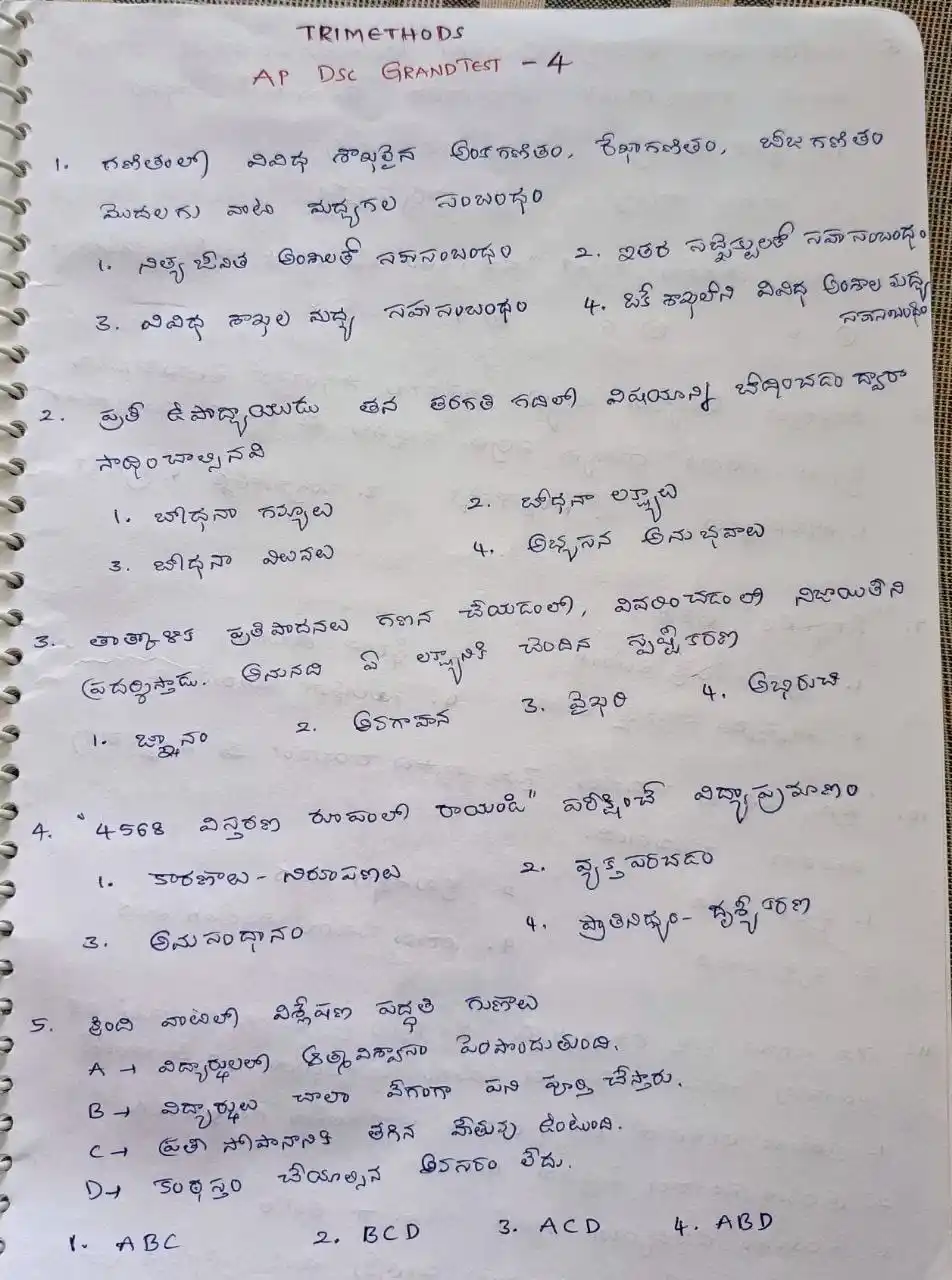 TRIMETHODS
AP DSC GRANDTEST - 4
1. గణితంలో వివిధ శాఖలైన అంకగణితం, రేఖాగణితం, బీజగణితం
మొదలగు వాటి మధ్యగల సంబంధం
1. నిత్య జీవిత అంశాలతో సహసంబంధం 2. ఇతర సబ్జెక్టులతో సహసంబంధం
3. వివిధ శాఖల మధ్య సహసంబంధం 4. ఒకే శాఖలోని వివిధ అంశాల మధ్య
సహసంబంధం
2. ప్రతీ ఉపాధ్యాయుడు తన తరగతి గదిలో విషయాన్ని బోధించడం ద్వారా
సాధించాల్సినవి
1. బోధనా గమ్యాలు 2. బోధనా లక్ష్యాలు
3. బోధనా విలువలు 4. అభ్యసన అనుభవాలు
3. తాత్కాలిక ప్రతిపాదనలు గణన చేయడంలో, వివరించడంలో నిజాయితీని
ప్రదర్శిస్తాడు. అనునది ఏ లక్ష్యానికి చెందిన స్పష్టీకరణ
1. జ్ఞానం 2. అవగాహన 3. వైఖరి 4. అభిరుచి
4. "4568 విస్తరణ రూపంలో రాయండి" పరీక్షించే విద్యాప్రమాణం
1. కారణాలు - నిరూపణలు 2. వ్యక్తపరచడం
3. అనుసంధానం 4. ప్రాతినిధ్యం - దృశ్యీకరణ
5. క్రింది వాటిలో విశ్లేషణ పద్ధతి గుణాలు
A → విద్యార్థులలో ఆత్మవిశ్వాసం పెంపొందుతుంది.
B → విద్యార్థులు చాలా వేగంగా పని పూర్తి చేస్తారు.
C → ప్రతీ సోపానానికి తగిన హేతువు ఉంటుంది.
D → కంఠస్తం చేయాల్సిన అవసరం లేదు.
1. ABC 2. BCD 3. ACD 4. ABD